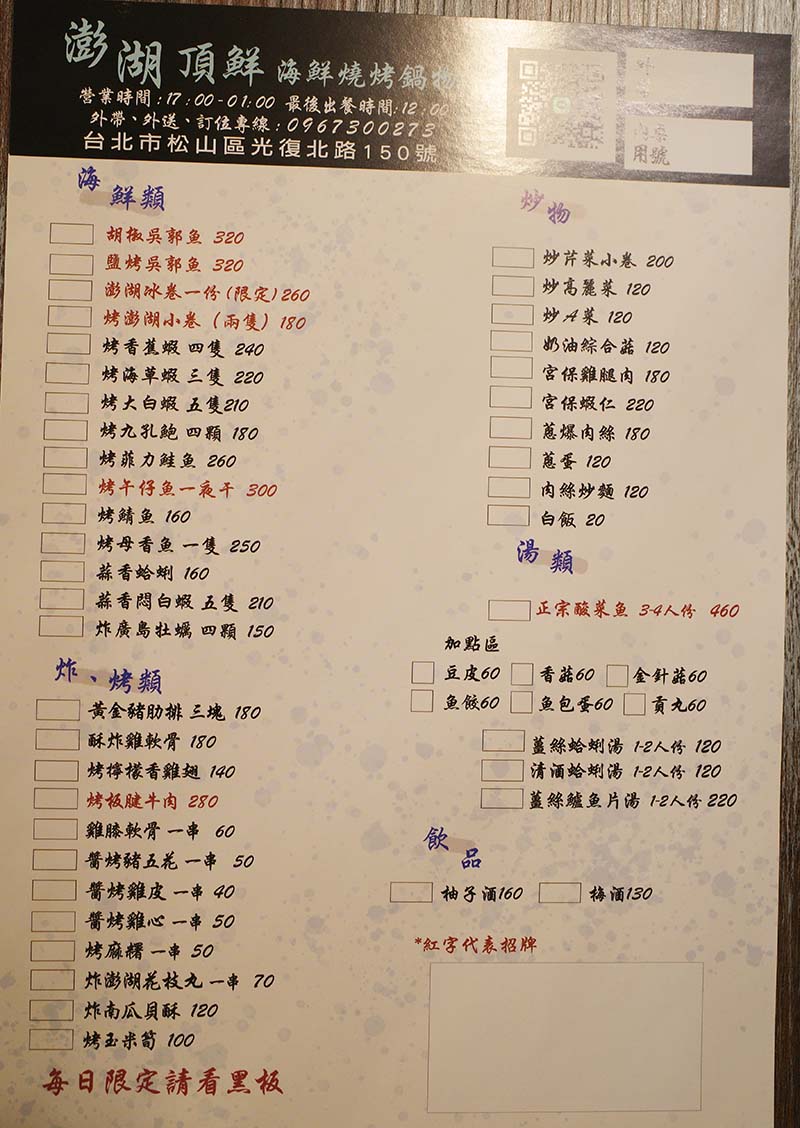 澎湖頂鮮 海鮮燒烤鍋物
營業時間:17:00-01:00 最後出餐時間:12:00
外帶、外送、訂位專線:0967300273
台北市松山區光復北路150號
用號
海鮮類
胡椒吳郭魚 320
鹽烤吳郭魚 320
澎湖冰卷一份(限定)260
烤澎湖小卷(兩隻) 180
烤香蕉蝦 四隻 240
烤海草蝦 三隻 220
烤大白蝦 五隻210
烤九孔鮑 四顆 180
烤菲力鮭魚 260
烤午仔魚一夜干 300
烤鯖魚 160
烤母香魚 一隻 250
蒜香蛤蜊 160
蒜香悶白蝦 五隻 210
炸廣島牡蠣 四顆 150
炸、烤類
黃金豬肋排 三塊 180
酥炸雞軟骨 180
烤檸檬香雞翅 140
烤板腱牛肉 280
雞膝軟骨 一串 60
醬烤豬五花 一串 50
醬烤雞皮 一串 40
醬烤雞心 一串 50
烤麻糬 一串 50
炸澎湖花枝丸 一串 70
炸南瓜貝酥 120
烤玉米筍 100
每日限定請看黑板
炒物
炒芹菜小卷 200
炒高麗菜 120
炒A菜 120
奶油綜合菇 120
宮保雞腿肉 180
宮保蝦仁 220
蔥爆肉絲 180
蔥蛋 120
肉絲炒麵 120
白飯 20
湯類
正宗酸菜魚 3-4人份 460
加點區
豆皮60 香菇60 金針菇60
魚餃60 魚包蛋60 貢丸60
薑絲蛤蜊湯 1-2人份 120
清酒蛤蜊湯 1-2人份 120
薑絲鱸魚片湯 1-2人份 220
飲品
柚子酒160 梅酒130
*紅字代表招牌